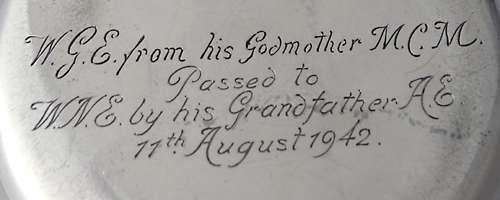 W.G.E. from his Godmother M.C.M.
Passed to
W.N.E. by his Grandfather A.E
11th August 1942.